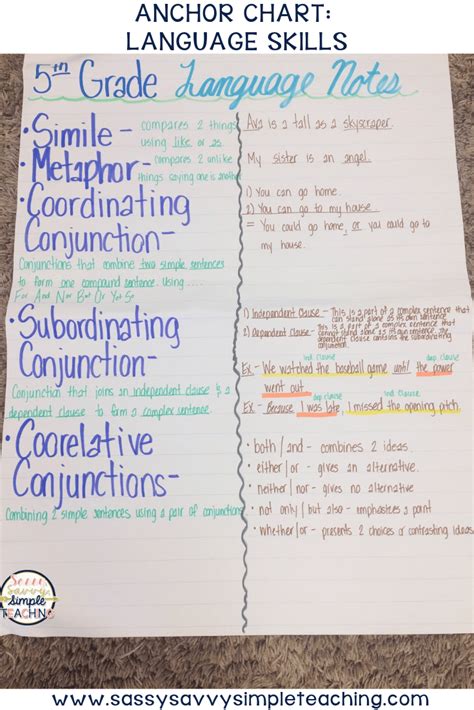 ANCHOR CHART:
LANGUAGE SKILLS
5th Grade Language Notes
• Simile - compares 2 things
using like or as
• Metaphor - compares 2 unlike
things saying one is another
• Coordinating
Conjunction -
Conjunctions that combine two simple sentences
to form one compound sentence. Using ....
For And Nor But Or Yet So
• Subordinating
Conjunction -
Conjunction that joins an independent clause & a
dependent clause to form a complex sentence.
• Coorelative
Conjunctions -
Combining 2 simple sentences using a pair of conjunctions
Ava is a tall as a skyscraper.
My sister is an angel.
1) You can go home.
2) You can go to my house
= You could go home, or you could go to
my house.
1) Independent Clause - This is a part of a complex sentence that
can stand alone as its own sentence.
2) Dependent Clause - This is a part of a complex sentence that
cannot stand alone as its own sentence. The
dependent clause contains the subordinating
conjunction.
ind. clause dep. clause
Ex. - We watched the baseball game until the power
went out.
dep clause ind. clause
Ex - Because I was late, I missed the opening pitch.
• both / and - combines 2 ideas.
• either / or - gives an alternative.
• neither / nor - gives no alternative
• not only / but also - emphasizes a point
• whether / or - presents 2 choices or contrasting ideas
Sassy
Savvy
Simple
TEACHING
www.sassysavvysimpleteaching.com